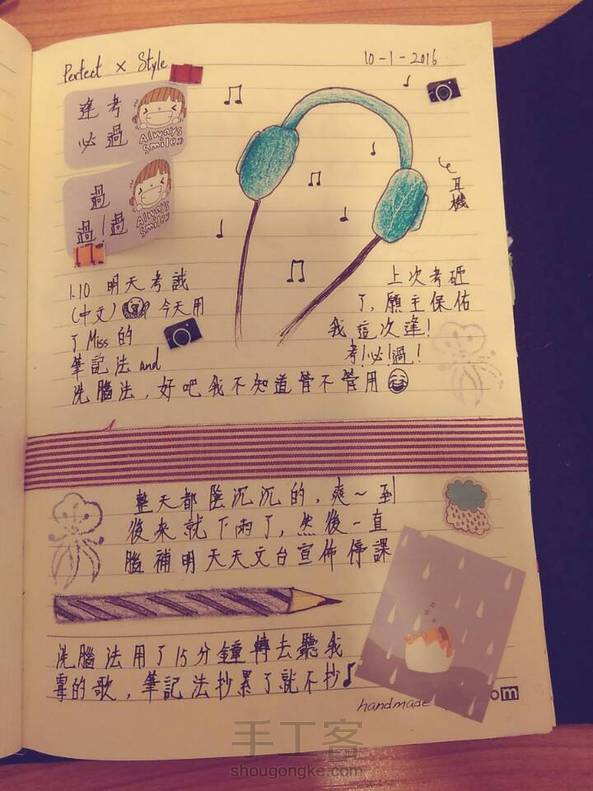 Perfect × Style
10-1-2016
逢考
必過
Always
Smile
過
過!過
Always
Smile
耳機
1.10 明天考試
(中文) 今天用
了Miss的
筆記法 and
洗腦法，好吧我不知道管不管用
上次考砸
了，願主保佑
我這次逢!
考!必!過!
整天都陰沉沉的，爽～到
後來就下雨了，然後一直
腦補明天天文台宣佈停課
洗腦法用了15分鐘轉去聽我
的歌，筆記法抄累了就不抄
handmade
om
手工客
shougongke.com